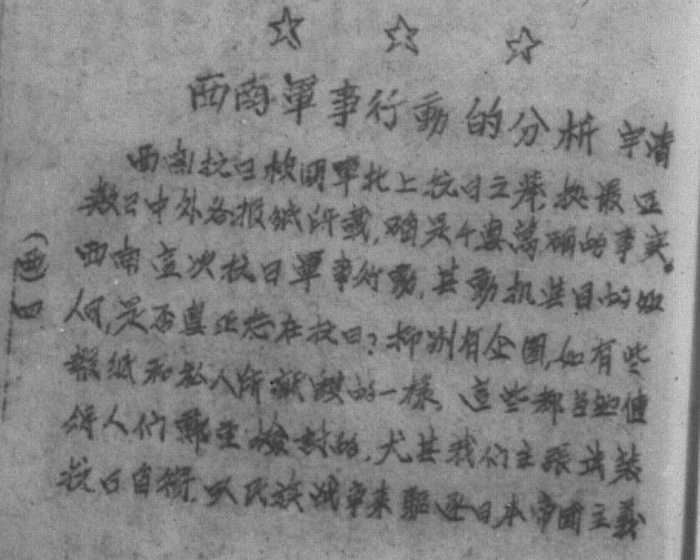 西南軍事行動的分析 宇清
西南抗日救国軍北上抗日之举,按最近
数日中外各报紙所载,确是千真萬确的事实。
西南這次抗日軍事行動,其動机其目的如
何,是否真正志在抗日?抑別有企圖,如有些
報紙和私人所說的一樣,這些都是值
得人们鄭重檢討的,尤其我们主張武裝
抗日自衛,以民族战争来驅逐日本帝國主義